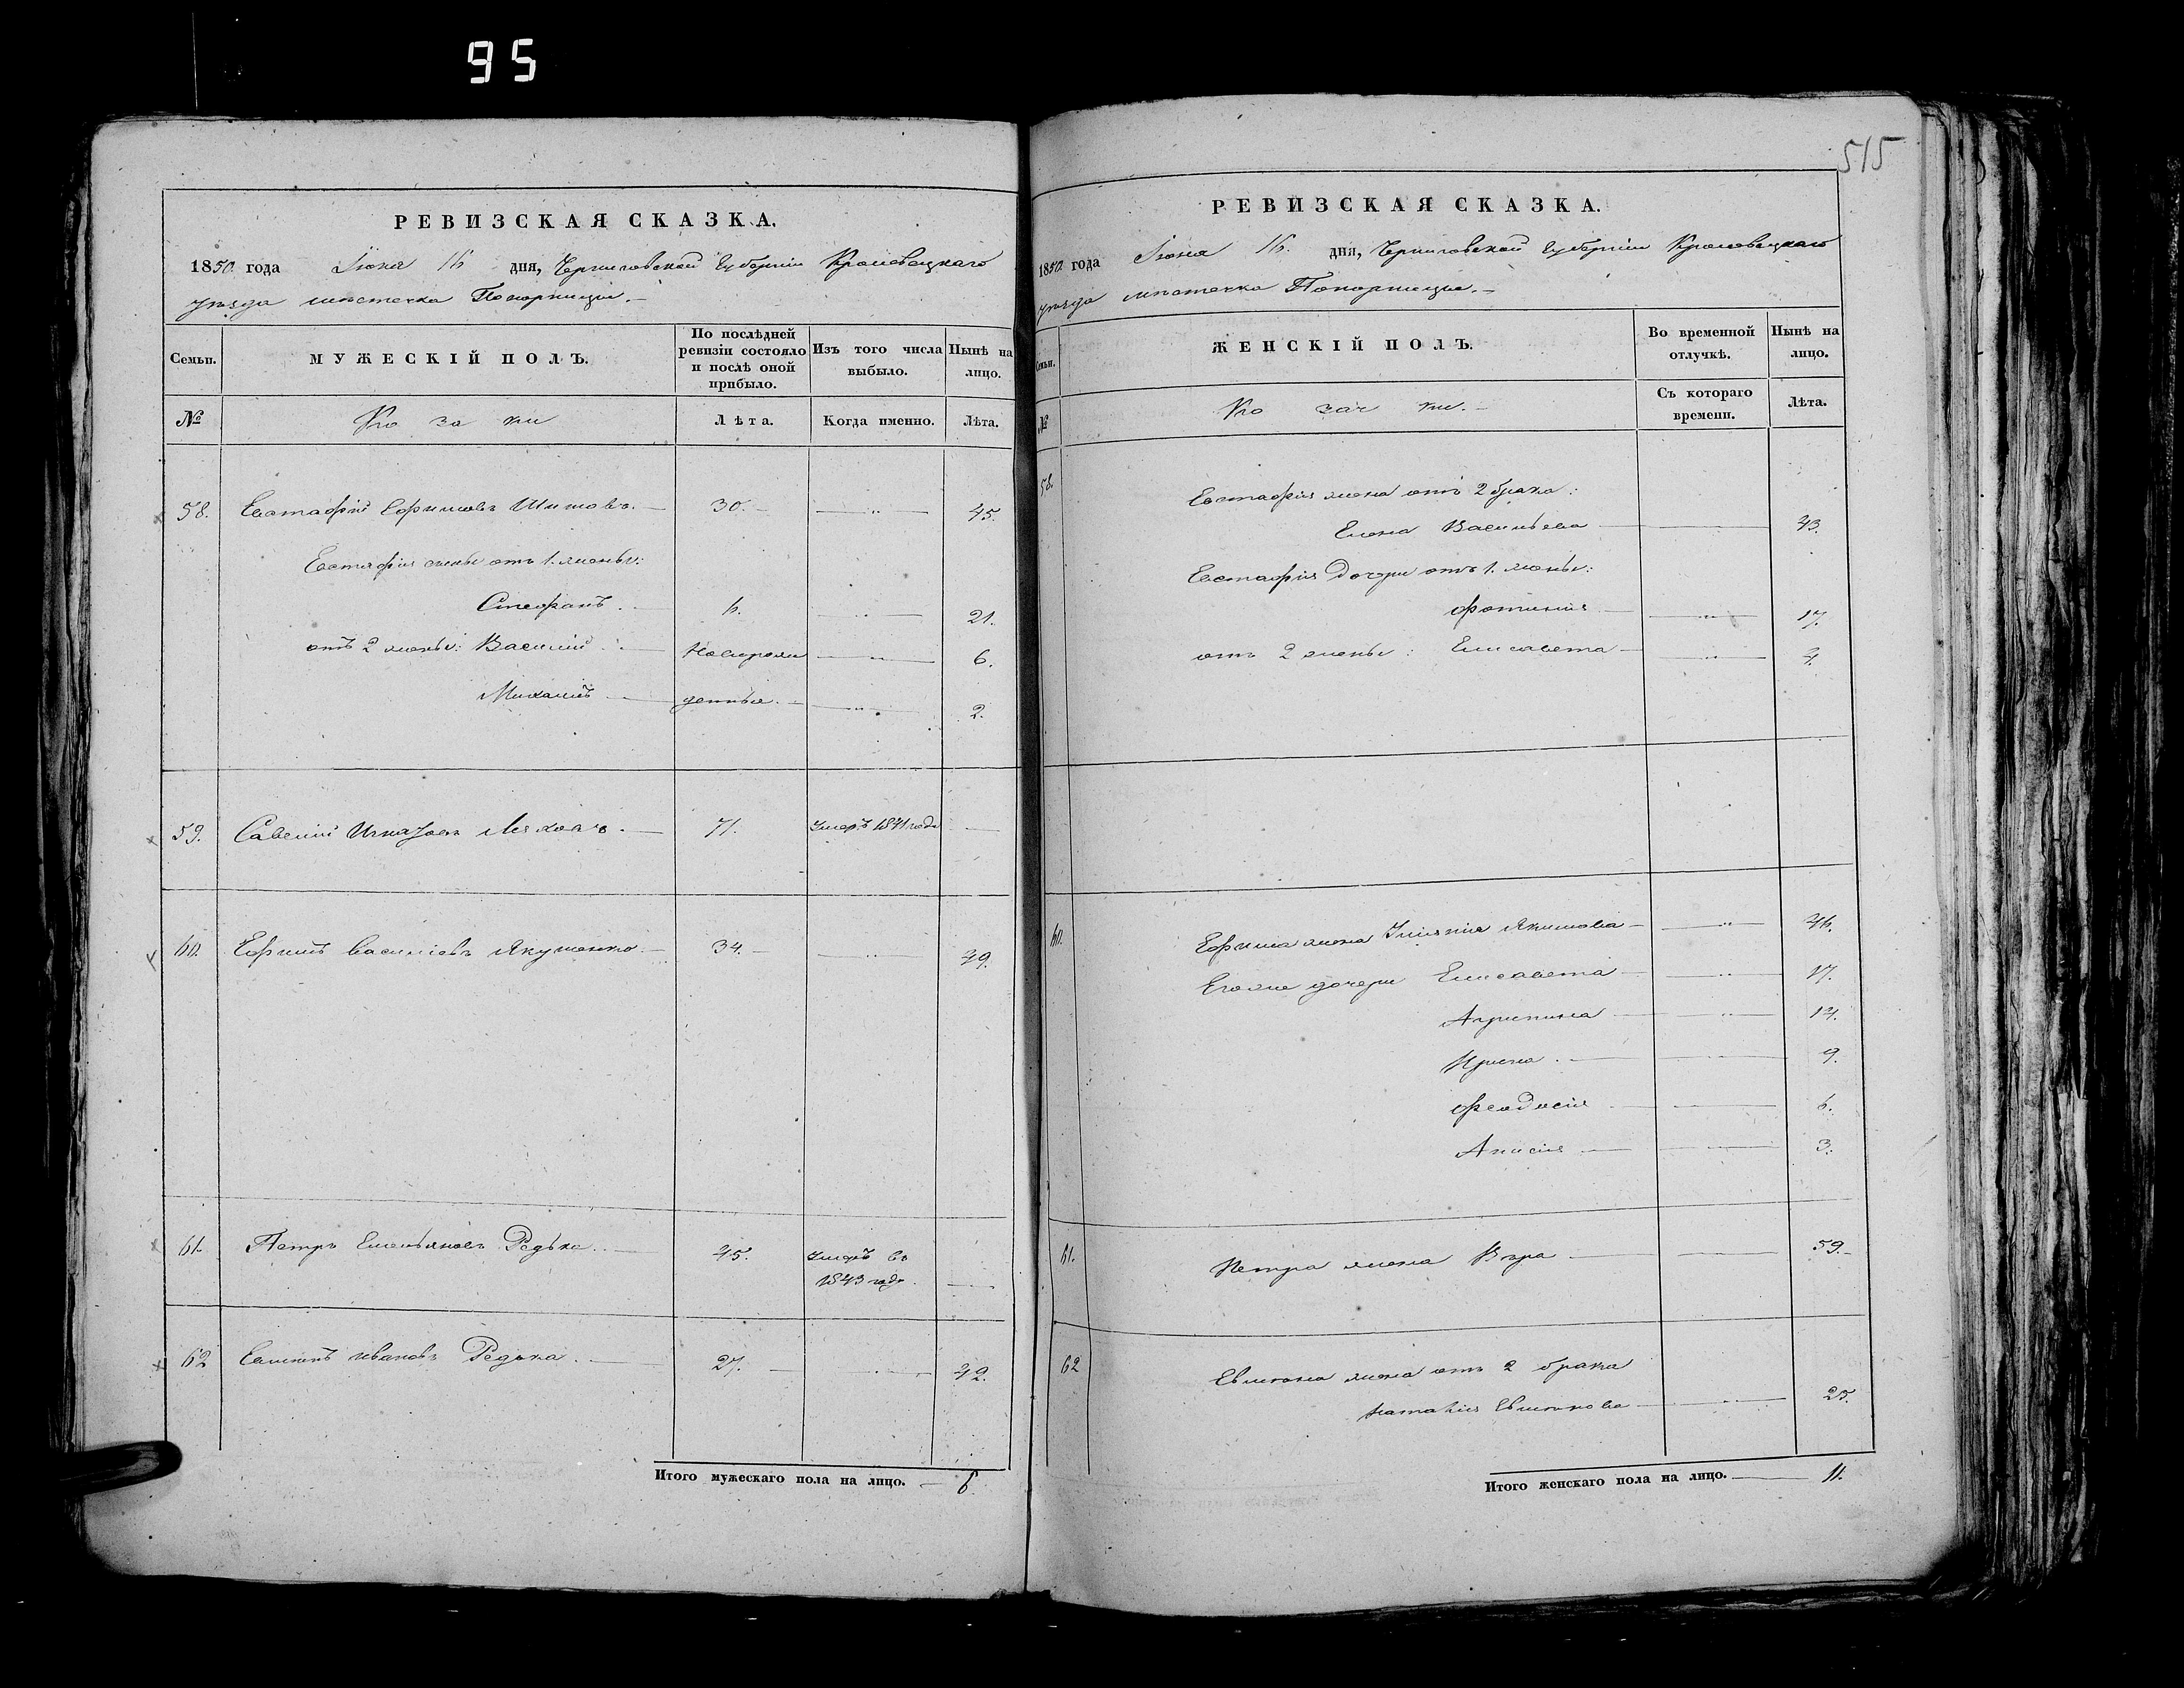 95
515
РЕВИЗСКАЯ СКАЗКА.
1850 года Іюня 16 дня, Черниговской Губерніи Кролевецкаго
уѣзда мѣстечка Понорницы.
Семьи.
МУЖЕСКІЙ ПОЛЪ.
По послѣдней ревизіи состояло и послѣ оной прибыло.
Изъ того числа выбыло.
Нынѣ на лицо.
№
Ко за ки
Лѣта.
Когда именно.
Лѣта.
58. Евстафій Ефимовъ 30. 45.
Евстафія сыны отъ 1. жены:
Стефанъ 6. 21.
отъ 2 жены: Василій Новорож 6.
Михаилъ денные 2.
59. Савелій 71. Умеръ 1841 года
60. Ефимъ Василіевъ Якушенко 34. 49.
61. Петръ Емельяновъ Редька 45. Умеръ въ
1843 годѣ.
62 Евтихъ Ивановъ Редька. 27. 42.
Итого мужескаго пола на лицо. 6
РЕВИЗСКАЯ СКАЗКА.
1850 года Іюня 16. дня, Черниговской Губерніи Кролевецкаго
уѣзда мѣстечка Понорницы.
Семьи.
ЖЕНСКІЙ ПОЛЪ.
Во временной отлучкѣ.
Нынѣ на лицо.
№
Ко зач ки.
Съ котораго времени.
Лѣта.
58. Евстафія жена отъ 2 брака:
Елена Васильева 43.
Евстафія дочери отъ 1. жены:
Фотинія 17.
отъ 2 жены: Елисавета 4.
60. Ефима жена Уліянія Якимова 46.
Его же дочери Елисавета 17.
Агрипина 14.
Ирина 9.
Феодосія 6.
Анисія 3.
61. Петра жена Вѣра 59.
62 жена отъ 2 брака
Наталія 25.
Итого женскаго пола на лицо. 11.